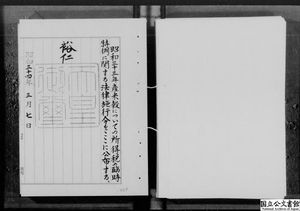 昭和三十三年産米穀についての所得税の臨時
特例に関する法律施行令をここに公布する。
裕仁
昭和三十四年三月七日
国立公文書館
National Archives of Japan